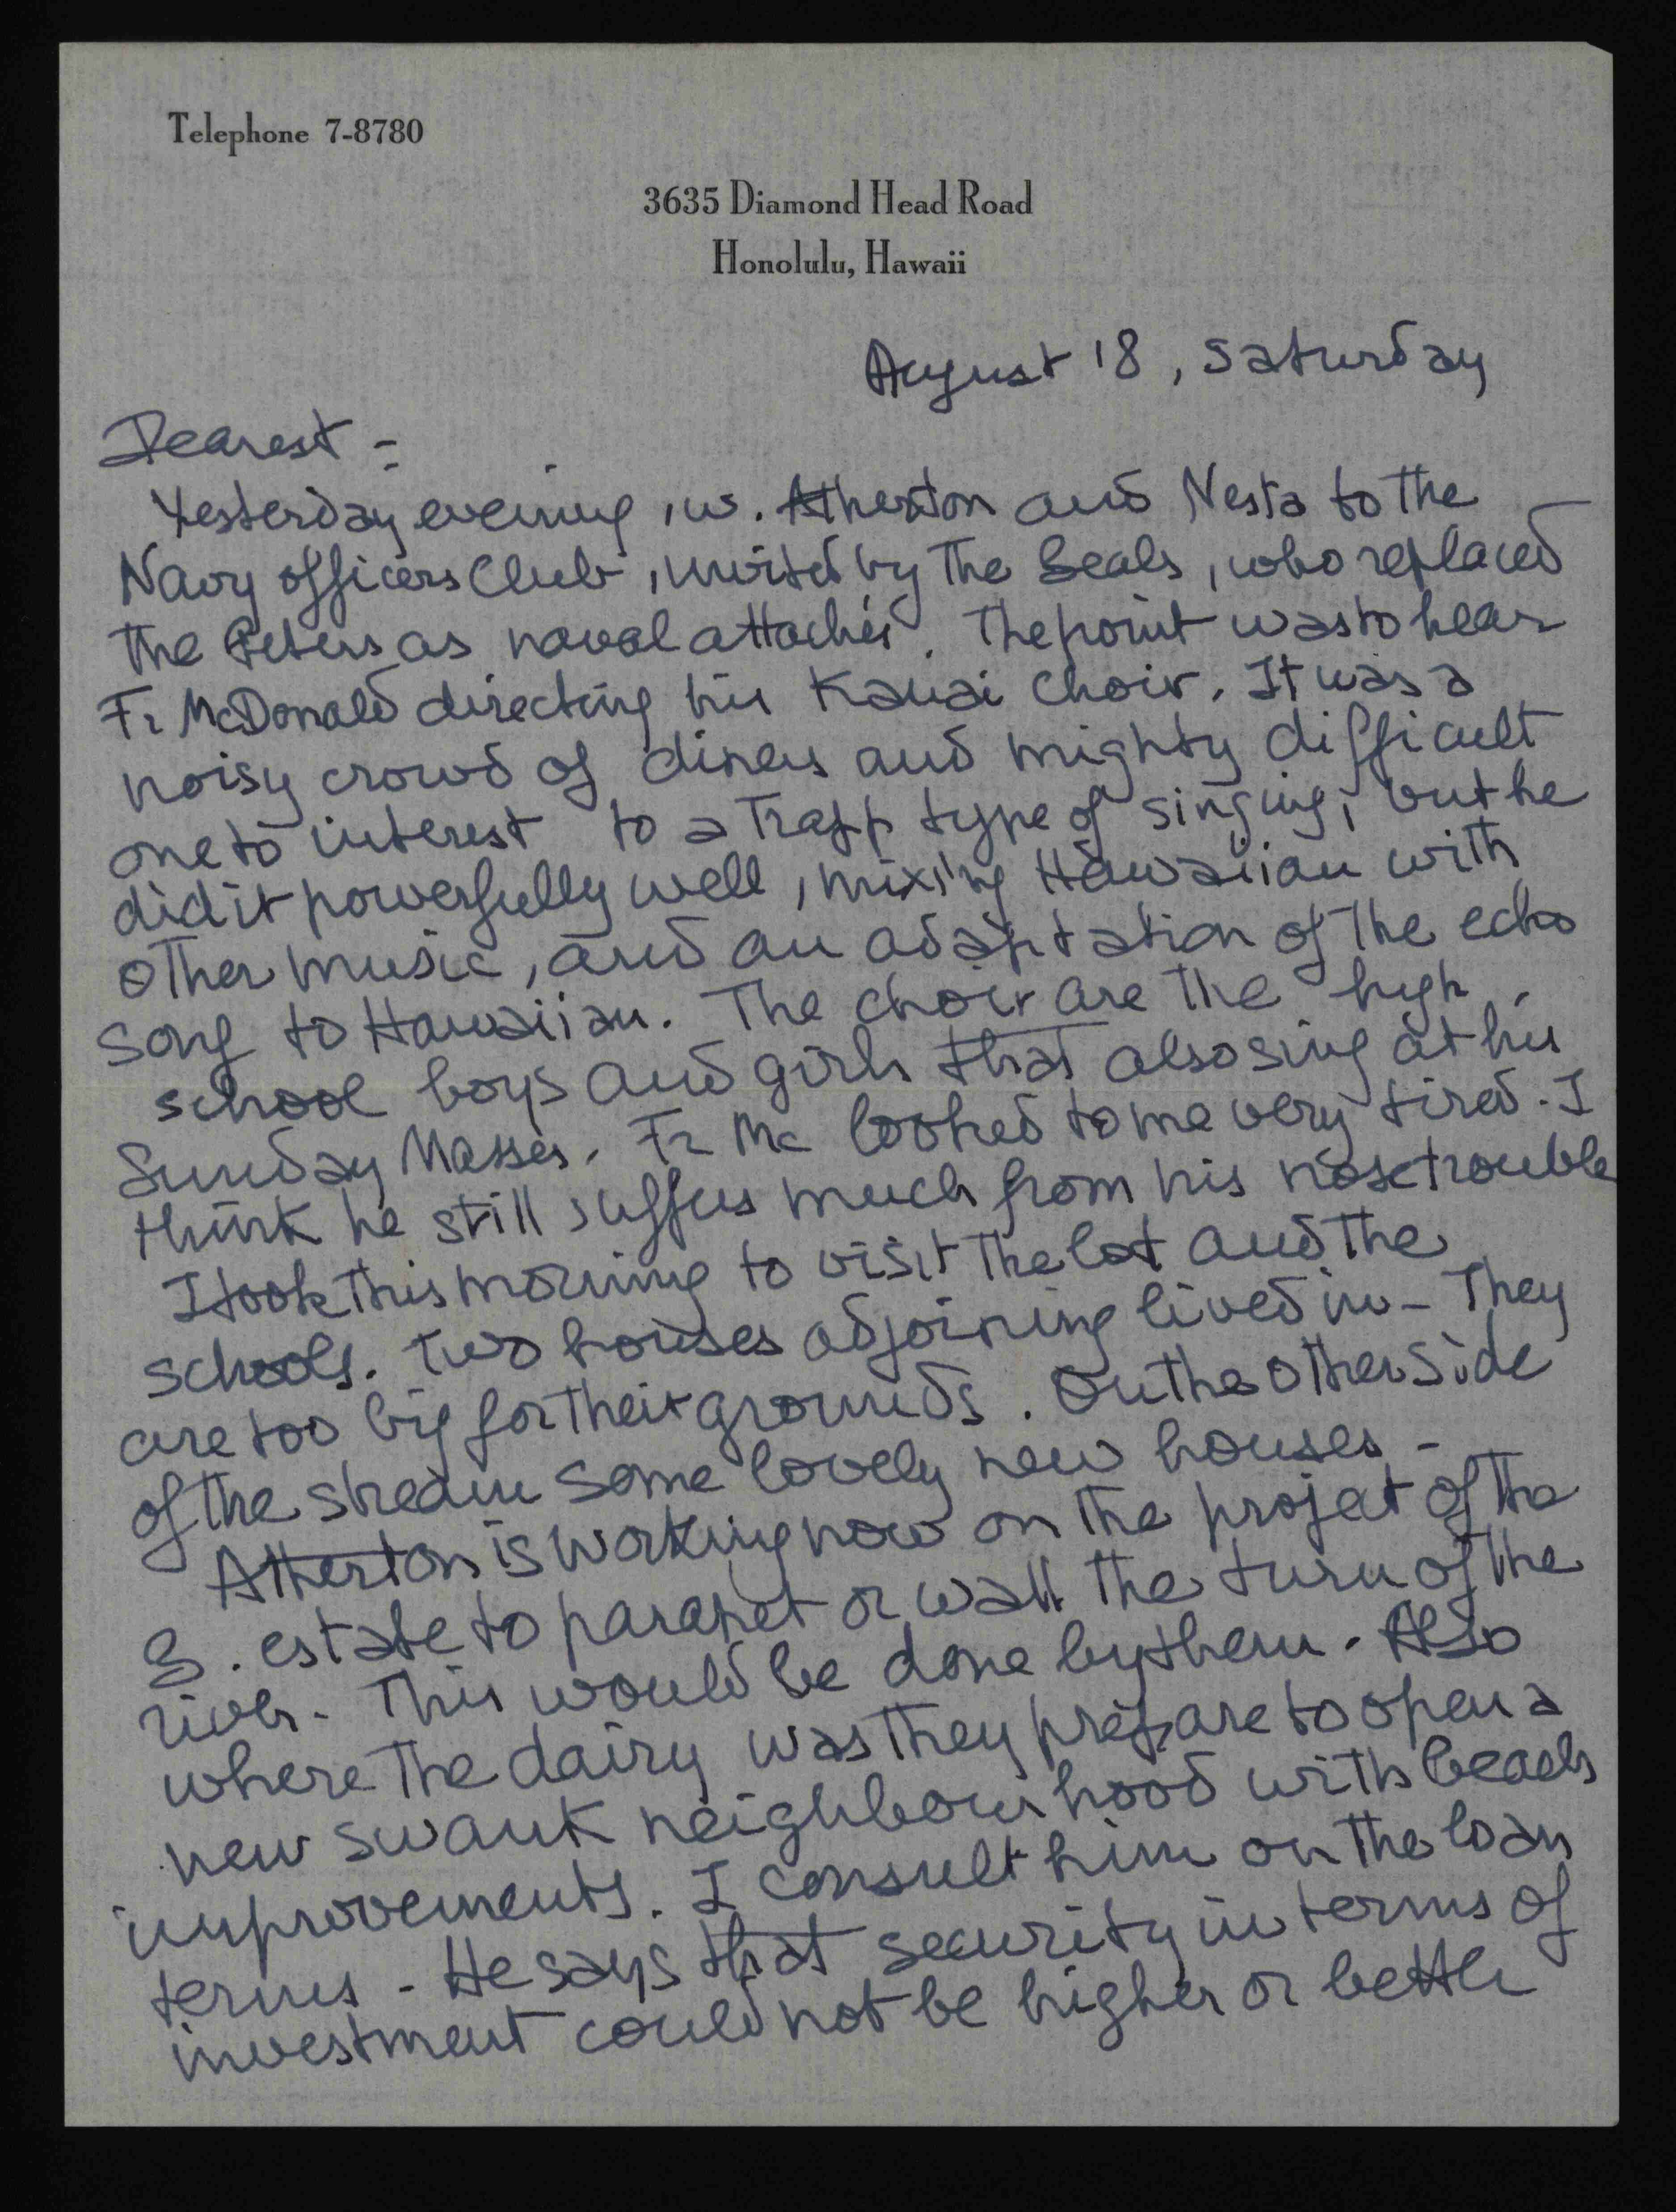 Telephone 7-8780
3635 Diamond Head Road
Honolulu, Hawaii
August 18, Saturday
Dearest -
Yesterday evening, w. Atherton and Nesta to the
Navy officers Club, invited by the Beals, who replaced
the Peters as naval attachés. The point was to hear
Fr McDonald directing his Kauai Choir. It was a
noisy crowd of diners and mighty difficult
one to interest to a Trapp type of singing, but he
did it powerfully well, mixing Hawaiian with
other music, and an adaptation of the echo
song to Hawaiian. The choir are the high
school boys and girls that also sing at his
Sunday Masses. Fr Mc looked to me very tired. I
think he still suffers much from his nose trouble
I took this morning to visit the lot and the
schools. two houses adjoining lived in - They
are too big for their grounds. On the other side
of the stream some lovely new houses -
Atherton is working now on the project of the
B. estate to parapet or wall the turn of the
river. This would be done by them. Also
where the dairy was they prepare to open a
new swank neighbourhood with beach
improvements. I consult him on the loan
terms - He says that security in terms of
investment could not be higher or better